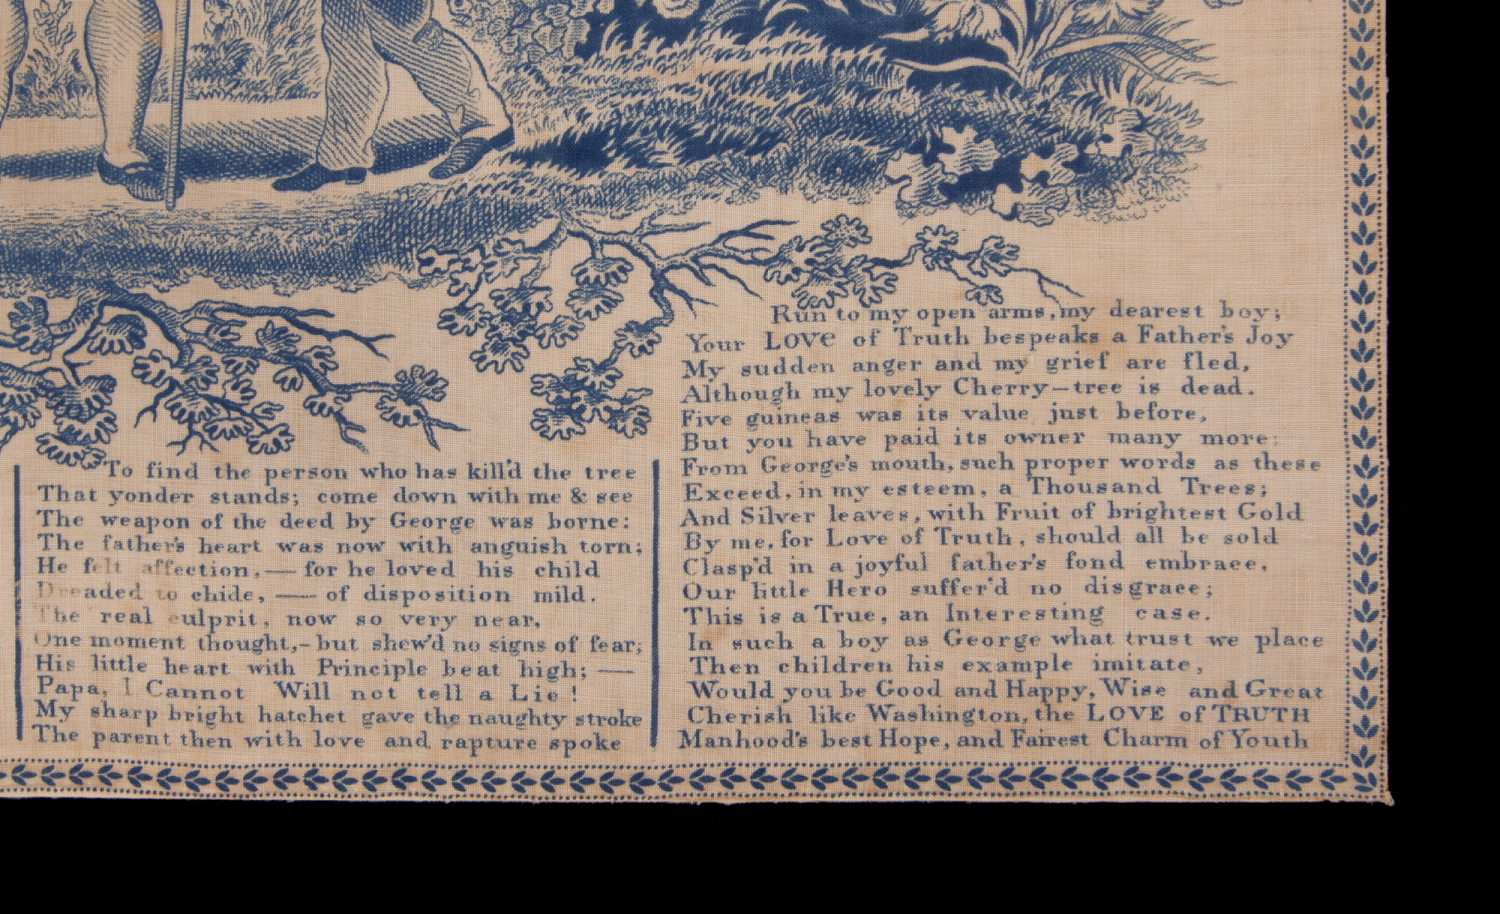 To find the person who has kill'd the tree
That yonder stands; come down with me & see
The weapon of the deed by George was borne:
The father's heart was now with anguish torn;
He felt affection,— for he loved his child
Dreaded to chide, — of disposition mild.
The real culprit, now so very near,
One moment thought,- but shew'd no signs of fear;
His little heart with Principle beat high; —
Papa, I Cannot Will not tell a Lie!
My sharp bright hatchet gave the naughty stroke
The parent then with love and rapture spoke
Run to my open arms, my dearest boy;
Your LOVE of Truth bespeaks a Father's Joy
My sudden anger and my grief are fled,
Although my lovely Cherry-tree is dead.
Five guineas was its value just before,
But you have paid its owner many more:
From George's mouth, such proper words as these
Exceed, in my esteem, a Thousand Trees;
And Silver leaves, with Fruit of brightest Gold
By me, for Love of Truth, should all be sold
Clasp'd in a joyful father's fond embrace,
Our little Hero suffer'd no disgrace;
This is a True, an Interesting case.
In such a boy as George what trust we place
Then children his example imitate,
Would you be Good and Happy, Wise and Great
Cherish like Washington, the LOVE of TRUTH
Manhood's best Hope, and Fairest Charm of Youth